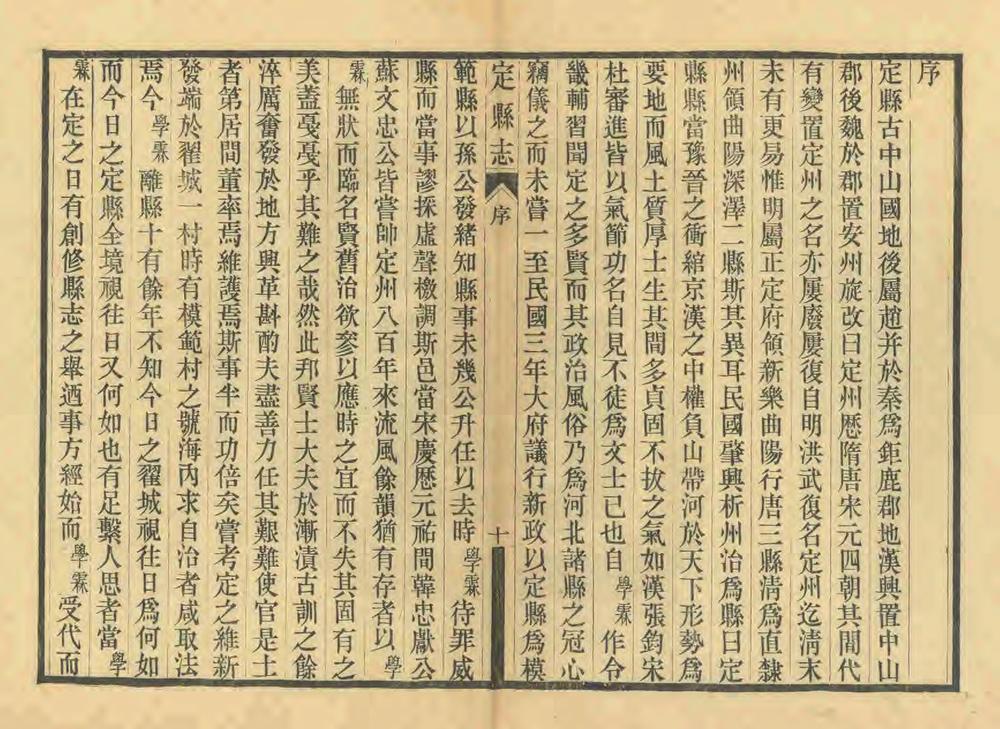 序
定縣古中山國地後屬趙并於秦爲鉅鹿郡地漢興置中山
郡後魏於郡置安州旋改曰定州歷隋唐宋元四朝其間代
有變置定州之名亦屢廢屢復自明洪武復名定州迄清末
未有更易惟明屬正定府領新樂曲陽行唐三縣清爲直隸
州領曲陽深澤二縣斯其異耳民國肇興析州治爲縣曰定
縣縣當豫晉之衝綰京漢之中權負山帶河於天下形勢爲
要地而風土質厚士生其間多貞固不拔之氣如漢張鈞宋
杜審進皆以氣節功名自見不徒爲文士已也自學霖作令
畿輔習聞定之多賢而其政治風俗乃爲河北諸縣之冠心
竊儀之而未嘗一至民國三年大府議行新政以定縣爲模
定縣志 序 十
範縣以孫公發緒知縣事未幾公升任以去時學霖待罪威
縣而當事謬採虛聲檄調斯邑當宋慶歷元祐間韓忠獻公
蘇文忠公皆嘗帥定州八百年來流風餘韻猶有存者以學
霖無狀而臨名賢舊治欲參以應時之宜而不失其固有之
美蓋戞戞乎其難之哉然此邦賢士大夫於漸漬古訓之餘
淬厲奮發於地方興革斟酌夫盡善力任其艱難使官是土
者第居間董率焉維護焉斯事半而功倍矣嘗考定之維新
發端於翟城一村時有模範村之號海內求自治者咸取法
焉今學霖離縣十有餘年不知今日之翟城視往日爲何如
而今日之定縣全境視往日又何如也有足繫人思者當學
霖在定之日有創修縣志之舉迺事方經始而學霖受代而